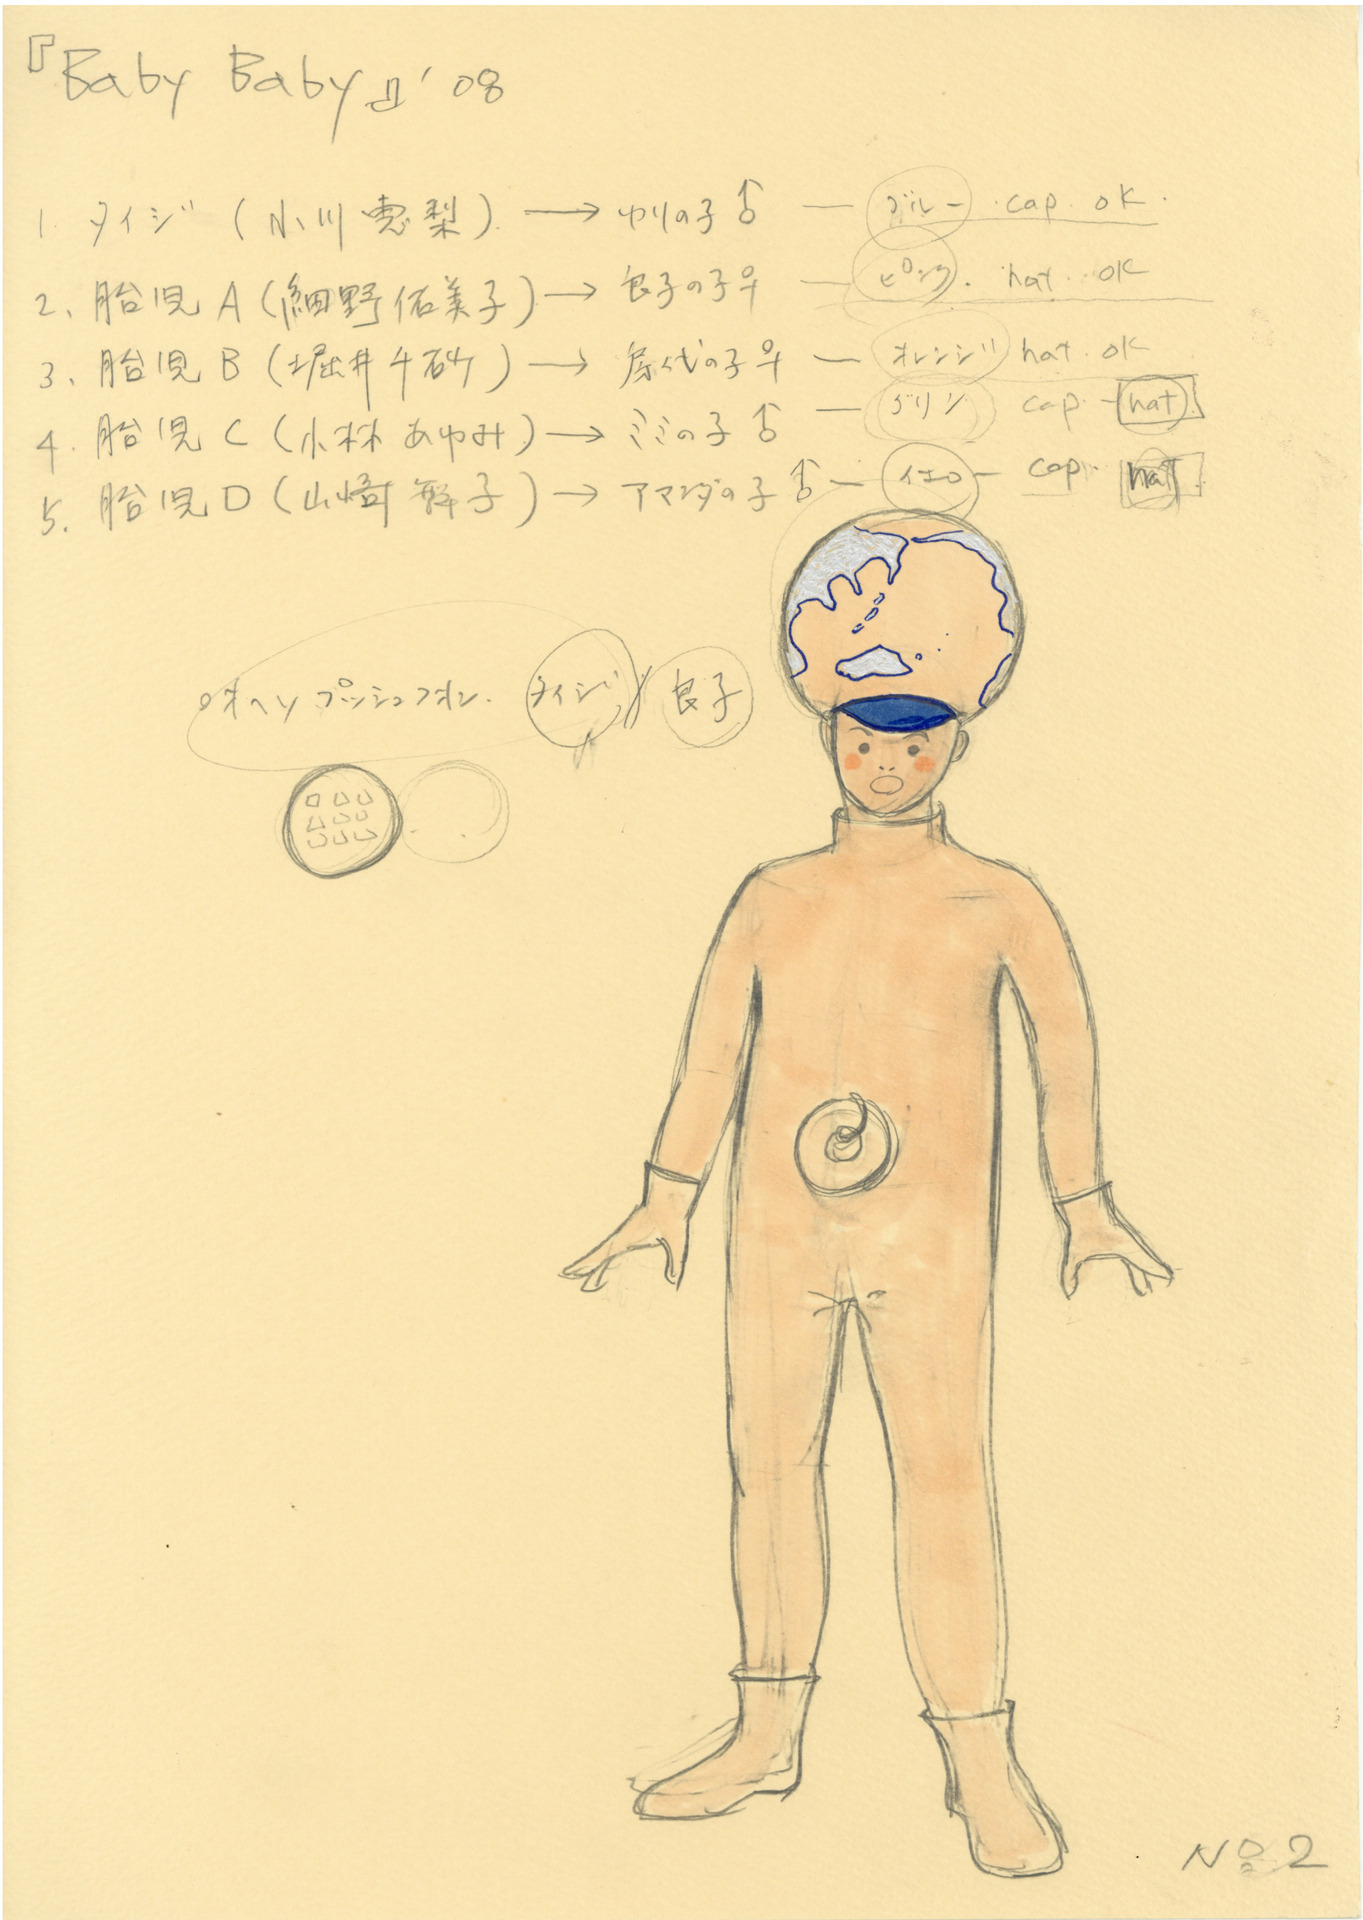 『Baby Baby』'08
1. タイジ (小川恵梨) → ゆりの子♂ — ブルー . cap . ok .
2. 胎児 A (細野佑美子) → 良子の子♀ — ピンク . hat .. ok
3. 胎児 B (堀井千砂) → 房代の子♀ — オレンジ hat . ok
4. 胎児 C (小林あゆみ) → ミミの子♂ — グリン cap . hat
5. 胎児 D (山崎 子) → アマンダの子♂ — イエロー cap . hat
オヘソ プッシュフォン. タイジ 良子
No 2